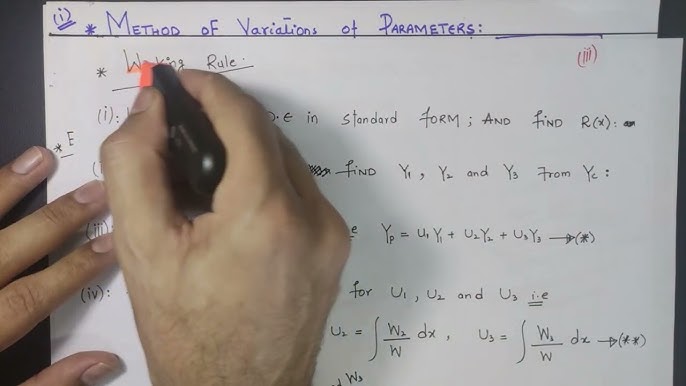 (i) * METHOD OF Variations of PARAMETERS:
* Working Rule. (iii)
(i): D.E in standard FORM; AND FIND R(x):
* E
FIND Y₁, Y₂ and Y₃ From Yc:
(iii) Yp = U₁Y₁ + U₂Y₂ + U₃Y₃ → (*)
(iv): for U₁, U₂ and U₃ i.e
U₂ = ∫ W₂/W dx, U₃ = ∫ W₃/W dx → (**)
W₃